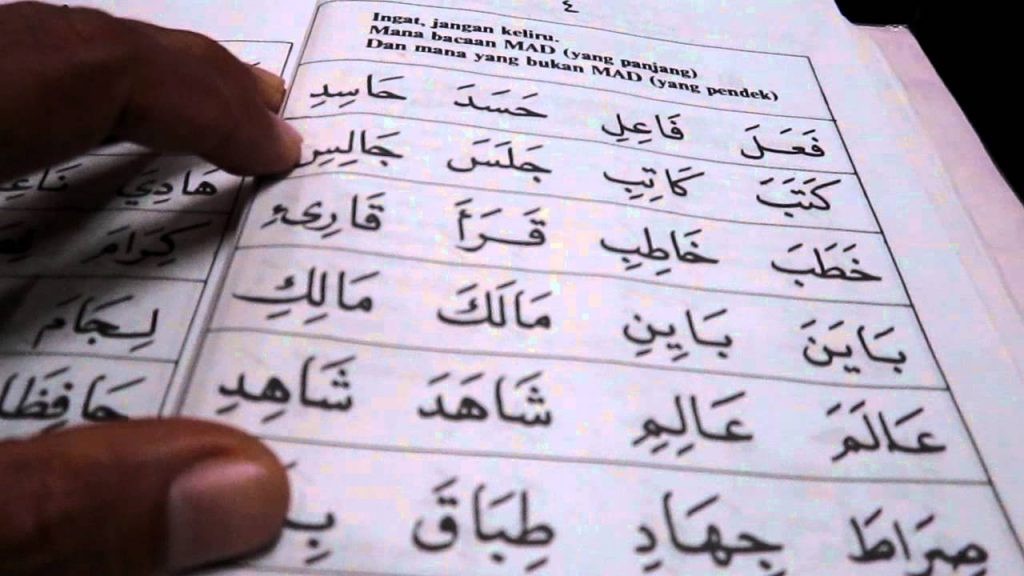 ٤
Ingat, jangan keliru.
Mana bacaan MAD (yang panjang)
Dan mana yang bukan MAD (yang pendek)
فَعَلَ فَاعِلِ حَسَدَ حَاسِدِ
كَتَبَ كَاتِبِ جَلَسَ جَالِسِ
خَطَبَ خَاطِبِ قَرَأَ قَارِئِ
بَايَنَ بَايِنِ مَالَكَ مَالِكِ
عَالَمَ عَالِمِ شَاهَدَ شَاهِدِ
صِرَاطَ جِهَادِ طِبَاقَ
هَادِيَ
كِرَامَ
لِجَامَ